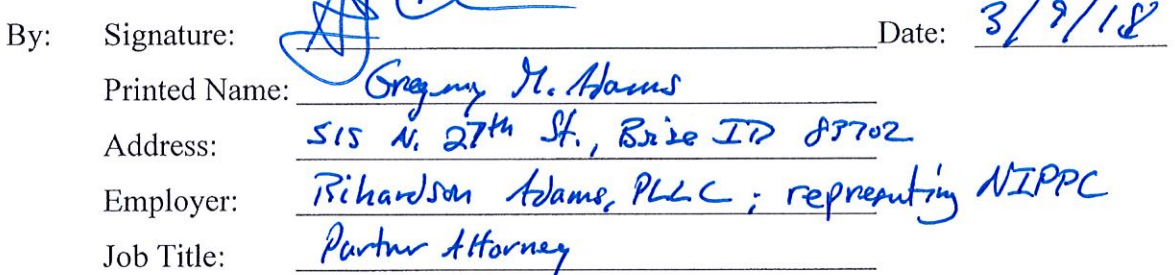 By: Signature: Date: 3/9/18
Printed Name: Gregory M. Adams
Address: 515 N. 27th St., Boise ID 83702
Employer: Richardson Adams, PLLC; representing NIPPC
Job Title: Partner Attorney